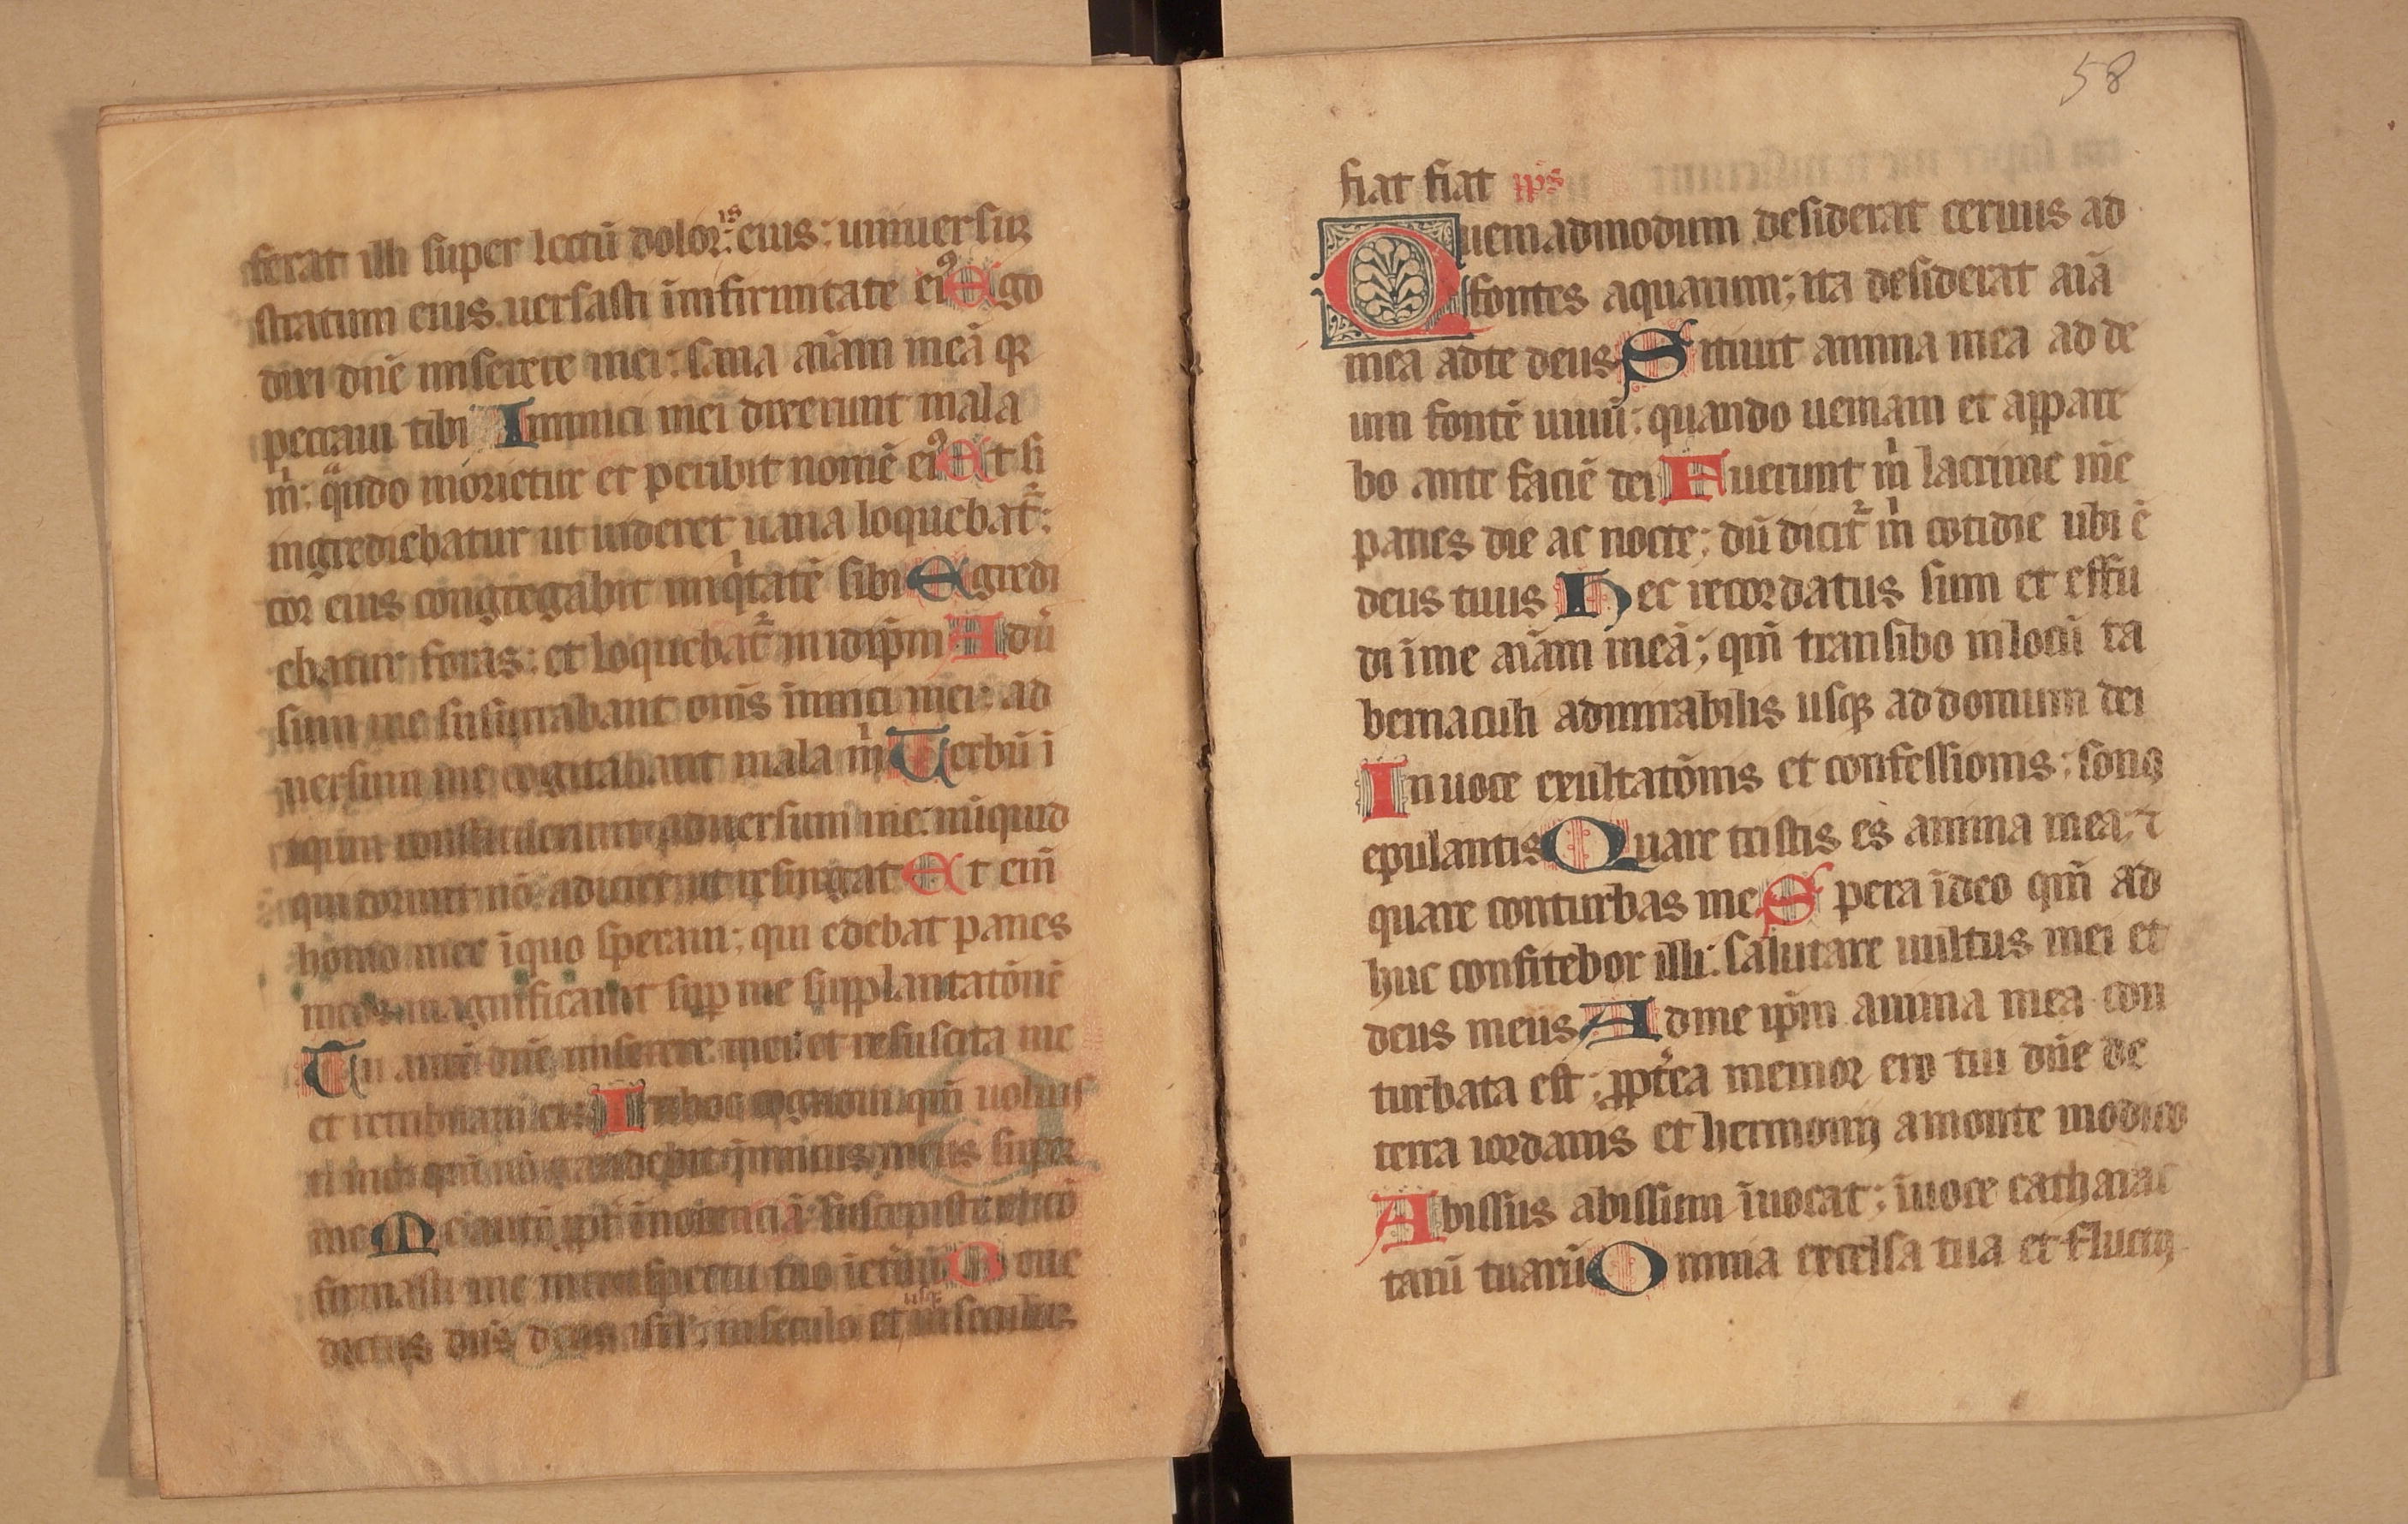 ferat illi super lectū dolor is eius: uniuersū
stratum eius uersasti īinfirmitate ei⁹ Ego
dixi dn̄e miserere mei: sana aīam meā qꝛ
peccaui tibi Inimici mei dixerunt mala
m̄: qūdo morietur et peribit nomē ei⁹ Et si
ingrediebatur ut uideret uana loquebat᷑:
cor eius congregabit iniqͥtatē sibi Egredi
ebatur foras: et loquebat᷑ inidip̄m Adū
sum me susurrabant om̄s inimici mei: ad
uersum me cogitabant mala m̄ Uerbū i
iqum constituerunt aduersum me: nūquid
qui dormit nō adiciet ut resurgat Et enī
homo mee īquo speraui: qui edebat panes
meos magnificauit suꝑ me supplantatōnē
Tu autē dn̄e miserere mei: et resuscita me
et retribuam eis In hoc cognoui qm̄ uoluis
ti me: qm̄ nō gaudebit inimicus meus super
me Me autē ꝓpt̄ īnocenciā suscepisti: et cō
firmasti me in conspectu tuo īetnū Bene
dictus dn̄s deus isrl̄: in seculo et usqꝫ in seculū
58
fiat fiat ip̄s
Quemadmodum desiderat ceruus ad
fontes aquarum; ita desiderat aīā
mea adte deus Sitiuit anima mea ad de
um fontē uiuū: quando ueniam et appare
bo ante faciē dei Fuerunt m̄ lacrime m̄e
panes die ac nocte; dū dicit᷑ m̄ cotidie ubi ē
deus tuus Hec recordatus sum et effu
di īme aīam meā; qm̄ transibo inlocū ta
bernaculi admirabilis usqꝫ addomum dei
In uoce exultatōnis et confessionis: sonꝰ
epulantis Quare tristis es anima mea; ⁊
quare conturbas me Spera īdeo qm̄ ad
huc confitebor illi: salutare uultus mei et
deus meus Adme ip̄m anima mea con
turbata est; ꝓpt̄ea memor ero tui dn̄e de
terra iordanis et hermonij amonte modico
Abissus abissum īuocat; īuoce catharac
tarū tuarū Omnia excelsa tua et fluctꝰ